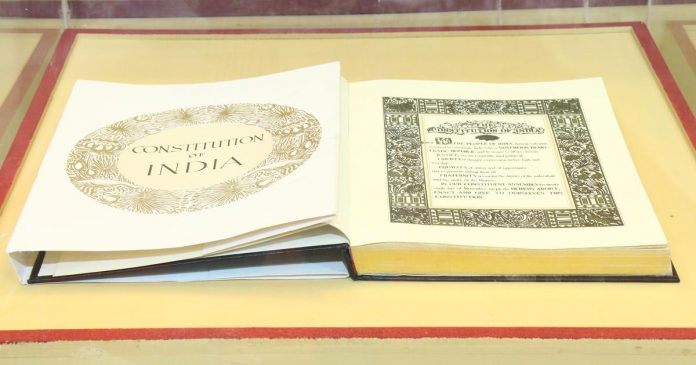 CONSTITUTION
OF
INDIA
THE
CONSTITUTION OF INDIA
WE, THE PEOPLE OF INDIA,
SOVEREIGN DEMO-
CRATIC REPUBLIC
JUSTICE, social, economic and political;
LIBERTY of thought, expression, belief, faith and
worship;
EQUALITY of status and of opportunity;
and to promote among them all
FRATERNITY assuring the dignity of the individual
and the unity of the Nation;
IN OUR CONSTITUENT ASSEMBLY this
day of November, HEREBY ADOPT,
ENACT AND GIVE TO OURSELVES THIS
CONSTITUTION.